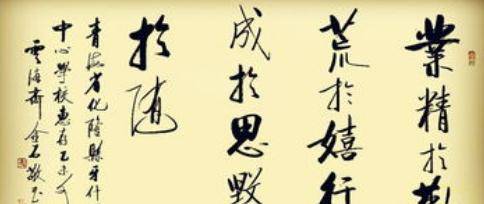 業精於勤
荒於嬉行
成於思毀
於隨
青海省化隆縣牙什
中心學校惠存乙未
雲海齋金石敬